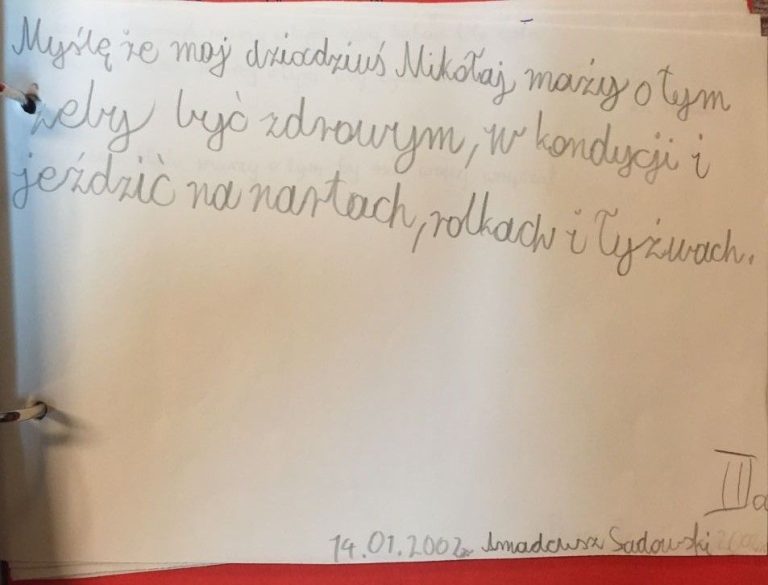 Myślę że moj dziadziuś Mikołaj maży o tym
żeby być zdrowym, w kondycji i
jeździć na nartach, rolkach i łyżwach.
IIIa
14.01.2002r. Amadeusz Sadowski